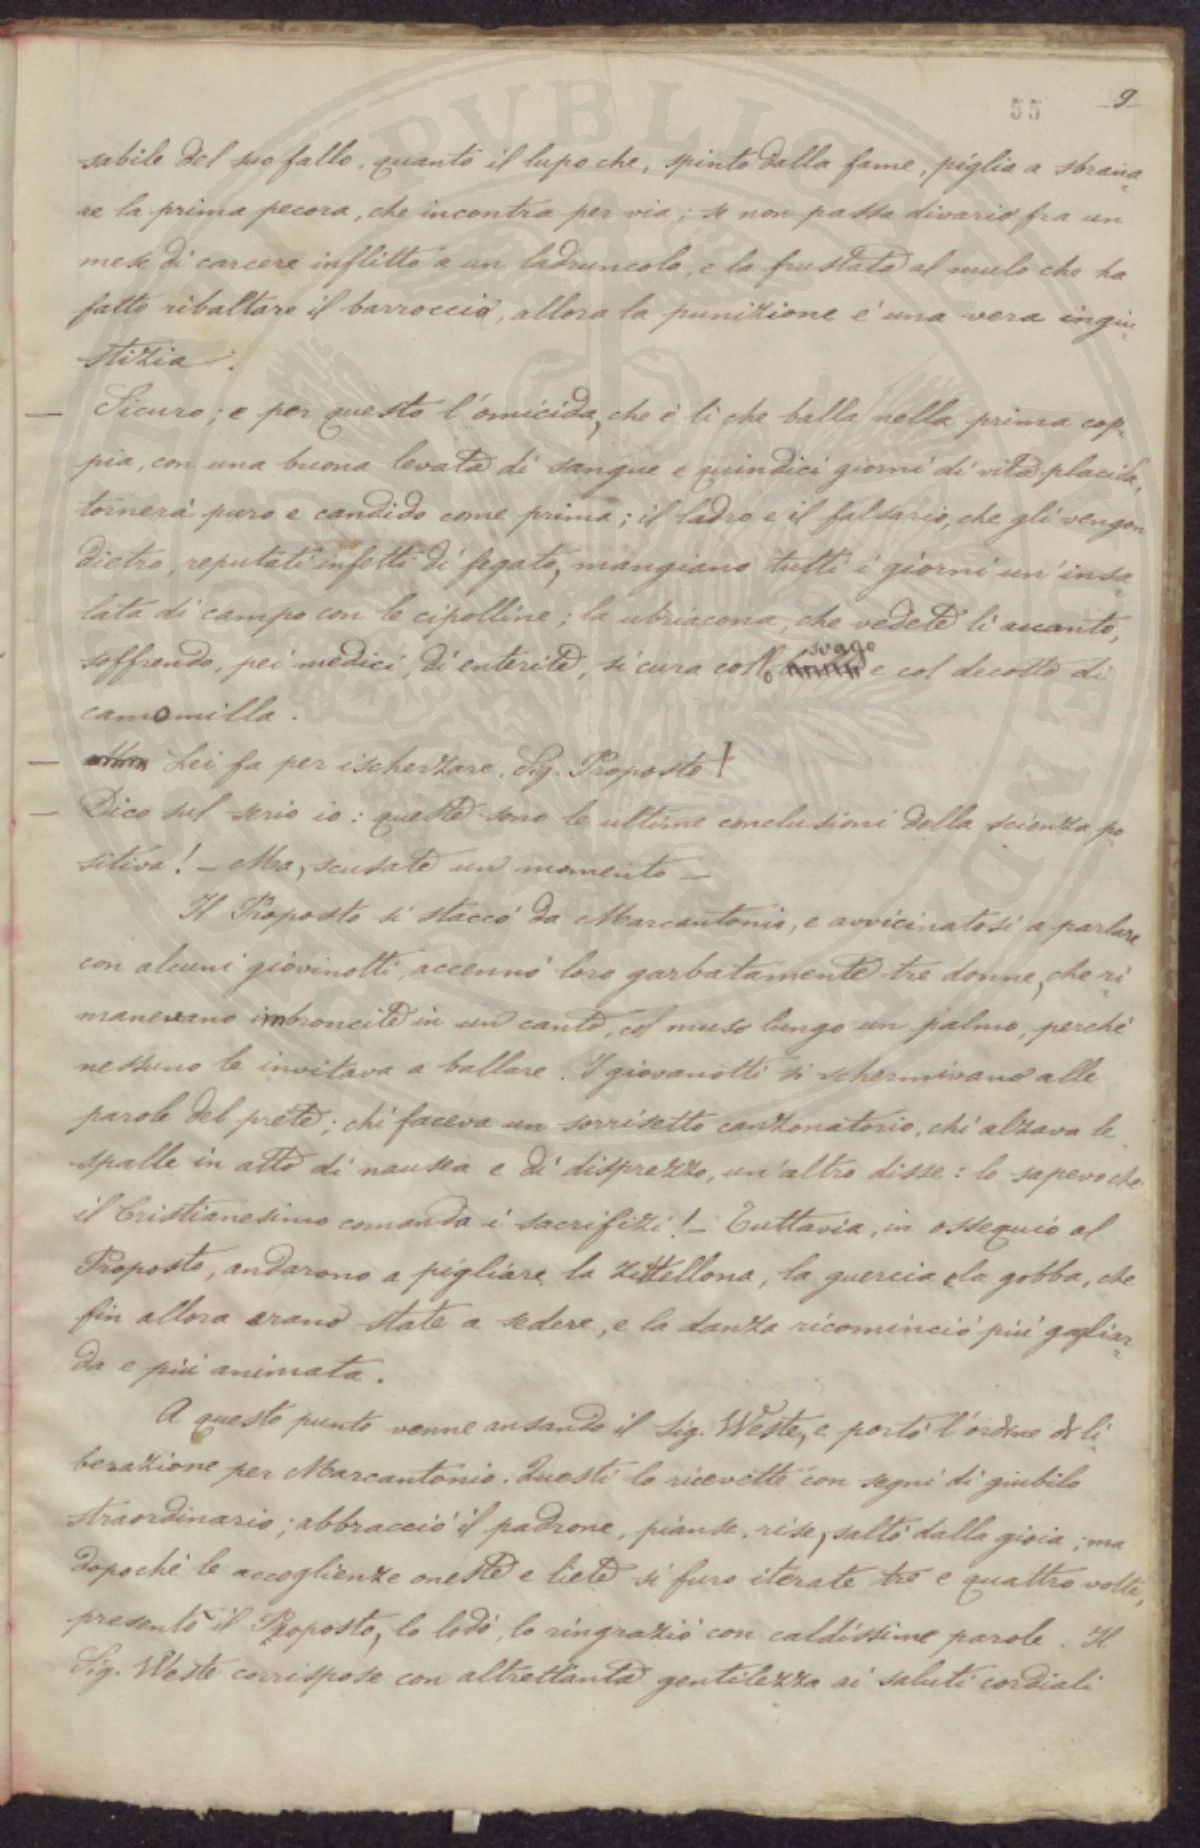 55 -9-
sabile del suo fallo, quanto il lupo che, spinto dalla fame, piglia a sbrana-
re la prima pecora, che incontra per via; se non passa divario fra un
mese di carcere inflitto a un ladruncolo, e la frustata al mulo che ha
fatto ribaltare il barroccio, allora la punizione è una vera ingiu-
stizia.
— Sicuro; e per questo l'omicida, che è lì che balla nella prima cop-
pia, con una buona levata di sangue e quindici giorni di vita placida,
tornerà puro e candido come prima; il ladro e il falsario, che gli vengon
dietro, reputati infetti di fegato, mangiano tutti i giorni un'insa-
lata di campo con le cipolline; la ubriacona, che vedete lì accanto,
soffrendo, pei medici, di enterite, si cura collo svago e col decotto di
camomilla.
— Lei fa per ischerzare, Sig. Proposto!
— Dico sul serio io: queste sono le ultime conclusioni della scienza po-
sitiva! – Ma, scusate un momento –
Il Proposto si staccò da Marcantonio, e avvicinatosi a parlare
con alcuni giovinotti, accennò loro garbatamente tre donne, che ri-
manevano imbroncite in un canto, col muso lungo un palmo, perchè
nessuno le invitava a ballare. I giovanotti si schermivano alle
parole del prete; chi faceva un sorrisetto canzonatorio, chi alzava le
spalle in atto di nausea e di disprezzo, un'altro disse: lo sapevo che
il Cristianesimo comanda i sacrifizi! – Tuttavia, in ossequio al
Proposto, andarono a pigliare la zittellona, la guercia e la gobba, che
fin allora erano state a sedere, e la danza ricominciò più gagliar-
da e più animata.
A questo punto venne ansando il Sig. Weste, e portò l'ordine di li-
berazione per Marcantonio. Questi lo ricevette con segni di giubilo
straordinario; abbracciò il padrone, pianse, rise, saltò dalla gioia; ma
dopochè le accoglienze oneste e liete si furo iterate tre e quattro volte,
presentò il Proposto, lo lodò, lo ringraziò con caldissime parole. Il
Sig. Weste corrispose con altrettanta gentilezza ai saluti cordiali